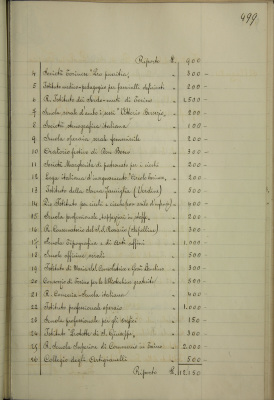 499.
Riporto £. 900
4. Società Torinese "Pro pueritia" 300 -
5. Istituto medico-pedagogico per fanciulli deficienti 200 -
6. R. Istituto dei Sordo-muti di Torino 2.500 -
7. Scuola serale 200 -
8. Società Stenografica italiana 100 -
9. Scuola operaia serale femminile 200 -
10. Oratorio festivo di Don Bosco 300 -
11. Società Margherita di patronato per i ciechi 200 -
12. Lega Italiana d'insegnamento 200 -
13. Istituto della Sacra Famiglia 500 -
14. Pio Istituto per 400 -
15. Scuola professionale 200 -
16. R. Conservatorio del SS. Rosario 300 -
17. Scuola Tipografica e di Arti affini 1.000 -
18. Scuole officine serali 500 -
19. Istituto di 300 -
20. Consorzio di Torino per le Biblioteche gratuite 500 -
21. R. Ginnasio italiana 400 -
22. Istituto professionale operaio 1.000 -
23. Scuola professionale per gli 150 -
24. Istituto di S. Giuseppe 300 -
25. R. Scuola Superiore di Commercio in Torino 2.000 -
26. Collegio degli Artigianelli 500 -
Riporto £. 13.150